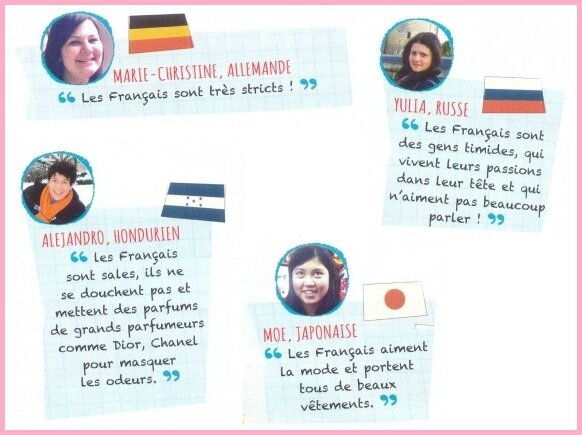 MARIE-CHRISTINE, ALLEMANDE
“ Les Français sont très stricts ! ”
YULIA, RUSSE
“ Les Français sont
des gens timides, qui
vivent leurs passions
dans leur tête et qui
n'aiment pas beaucoup
parler ! ”
ALEJANDRO, HONDURIEN
“ les Français
sont sales, ils ne
se douchent pas et
mettent des parfums
de grands parfumeurs
comme Dior, Chanel
pour masquer
les odeurs. ”
MOE, JAPONAISE
“ Les Français aiment
la mode et portent
tous de beaux
vêtements. ”